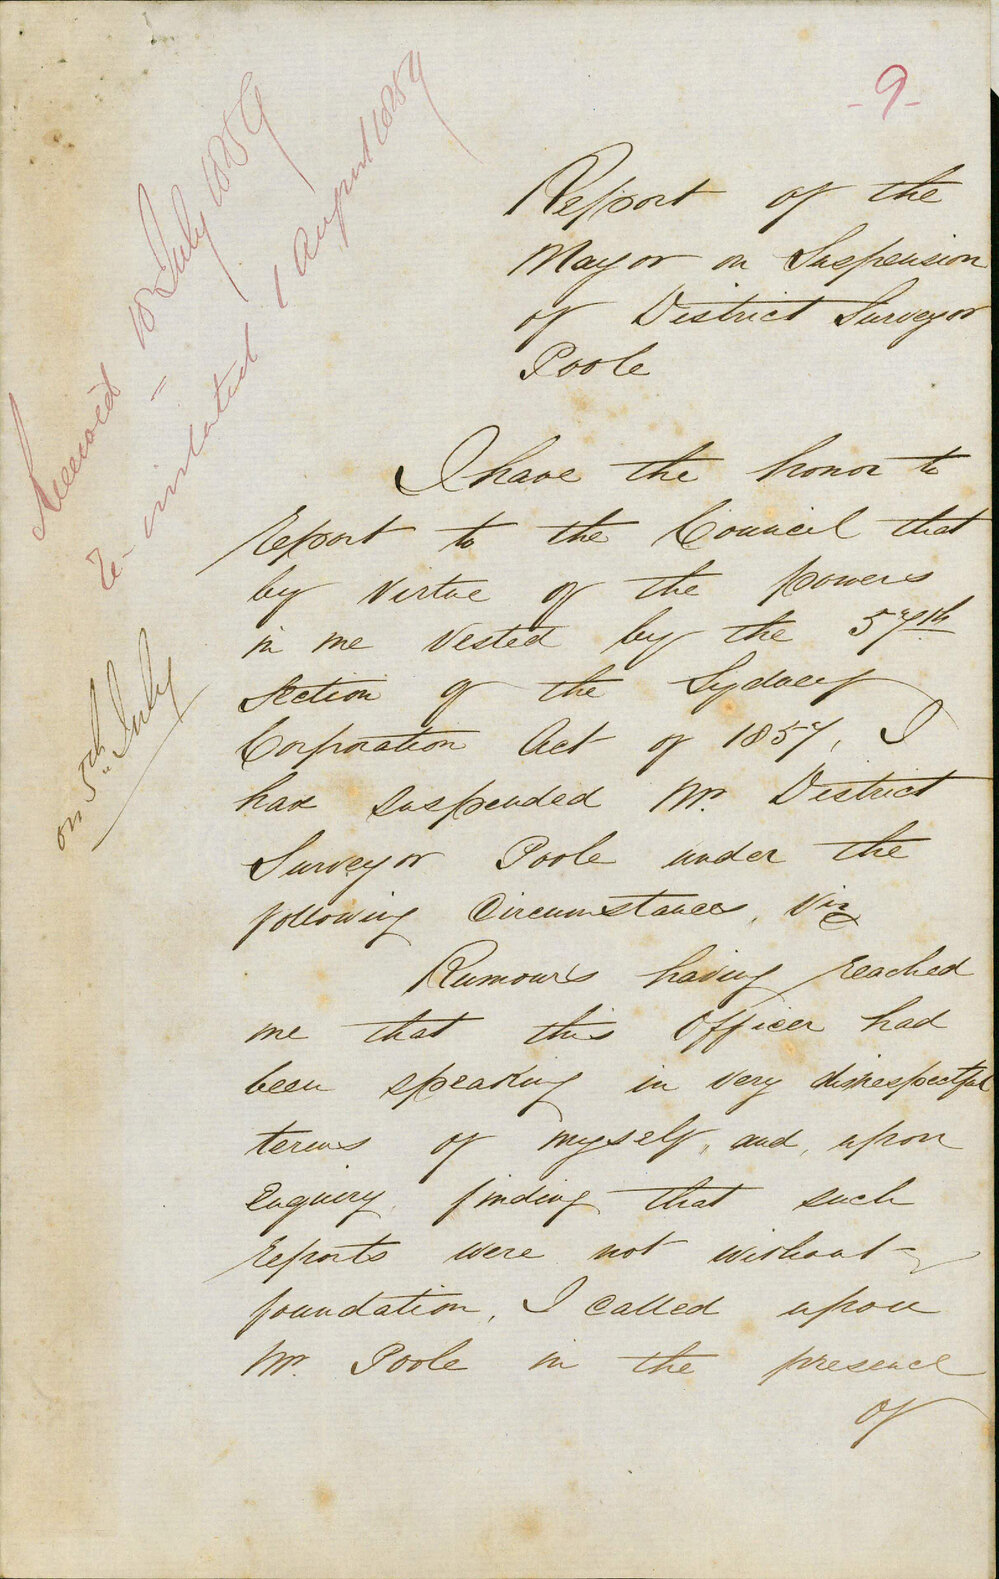 - 9 -
Received 18 July 1859
- to 
1 August 1859
on 5th July
Report of the
Mayor on Suspension
of District Surveyor
Poole
I have the honor to
report to the Council that
by virtue of the powers
in me vested by the 57th
Section of the Sydney
Corporation Act of 1857, I
have suspended Mr. District
Surveyor Poole under the
following Circumstances, Viz
Rumours having reached
me that this Officer had
been speaking in very disrespectful
terms of myself, and, upon
enquiry, finding that such
reports were not without
foundation, I called upon
Mr. Poole in the presence
of